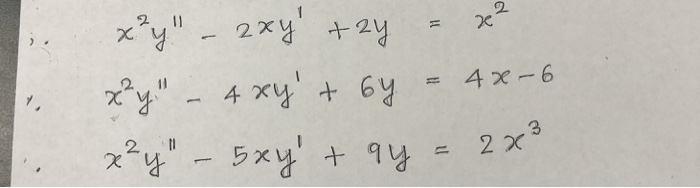 x²y" - 2xy' + 2y = x²
x²y" - 4xy' + 6y = 4x-6
x²y" - 5xy' + 9y = 2x³